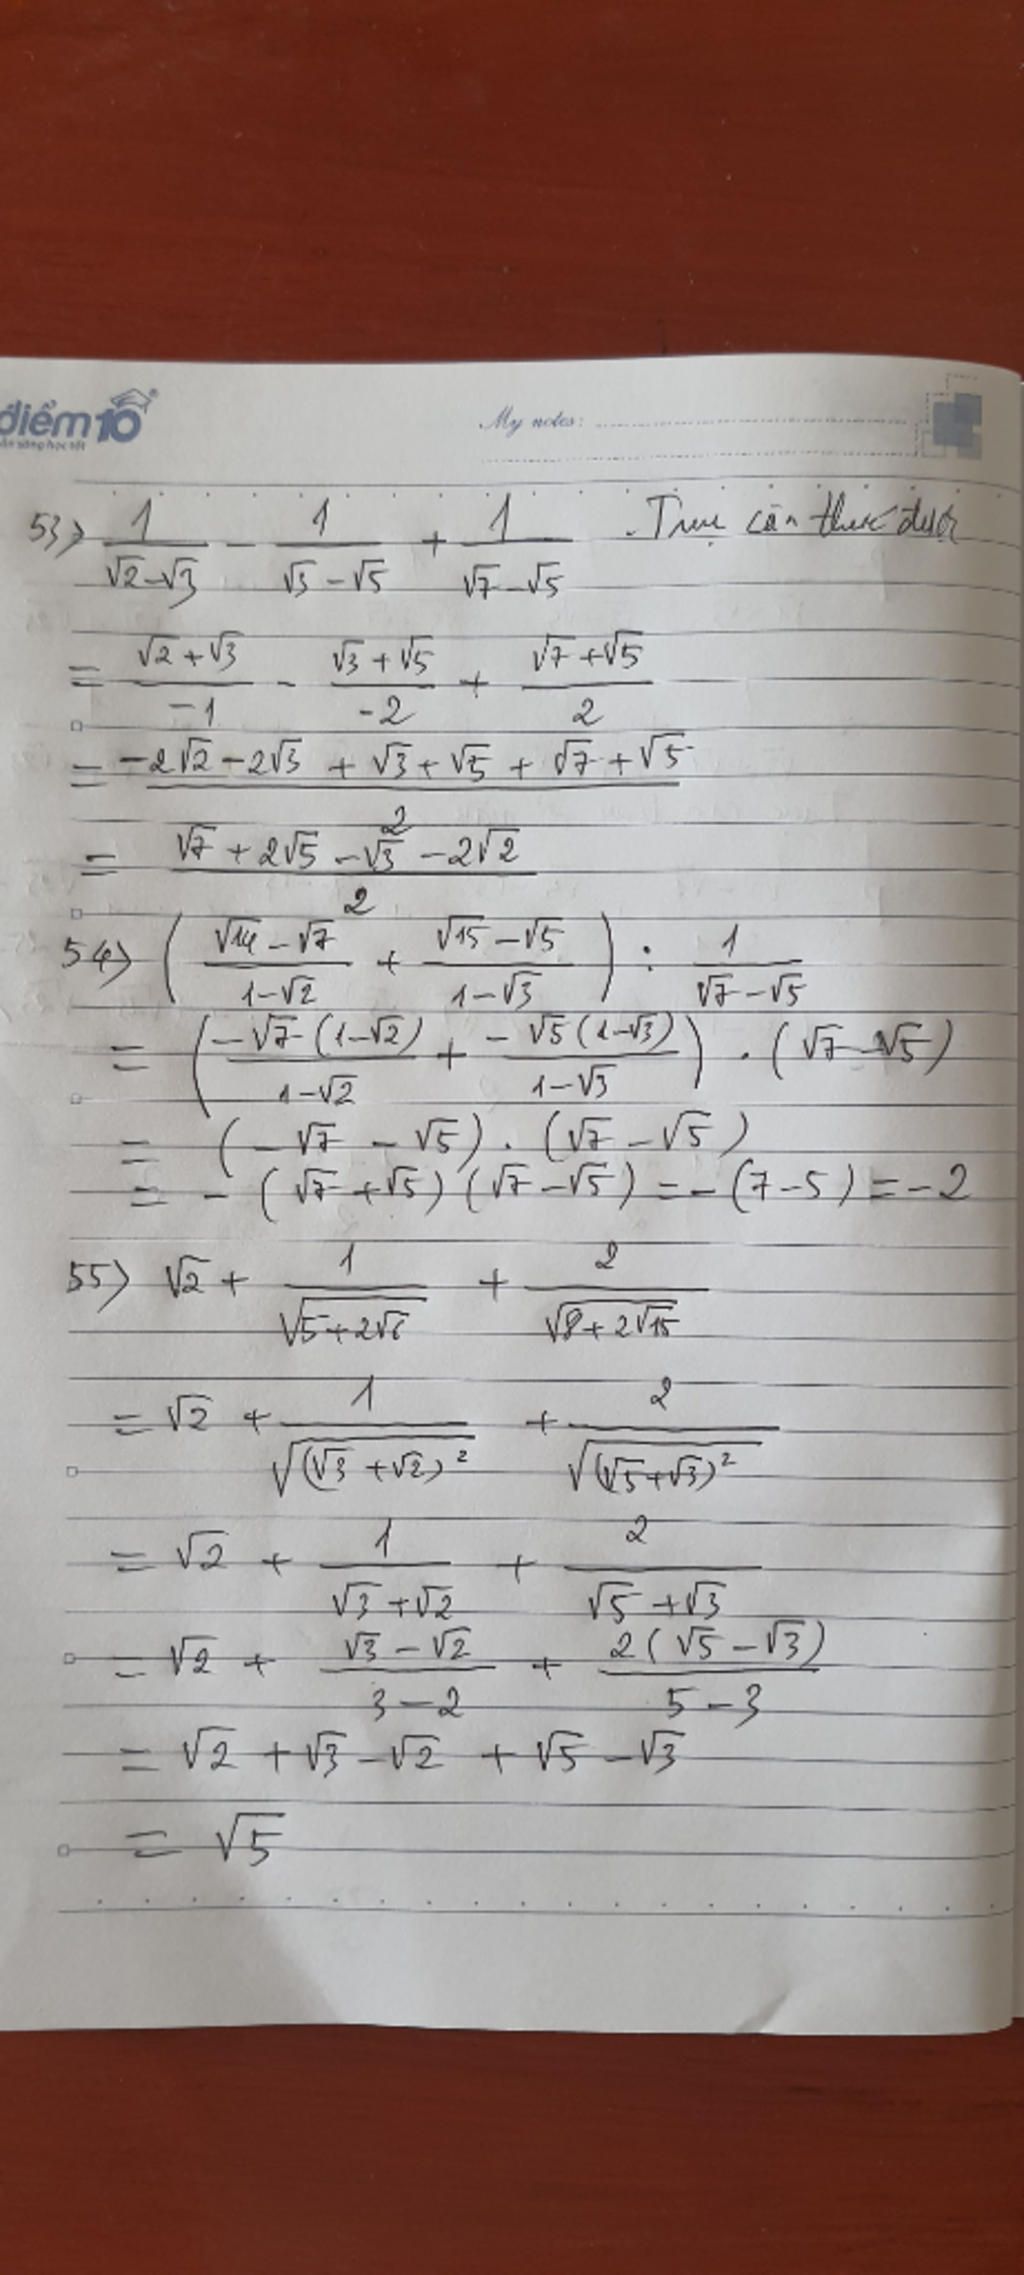 điểm10
My notes:
53> 1/(√2-√3) - 1/(√3-√5) + 1/(√7-√5) . Trục căn thức dưới
= (√2+√3)/(-1) - (√3+√5)/(-2) + (√7+√5)/2
= (-2√2-2√3+√3+√5+√7+√5)/2
= (√7+2√5-√3-2√2)/2
54> ((√14-√7)/(1-√2) + (√15-√5)/(1-√3)) : 1/(√7-√5)
= (-√7(1-√2)/(1-√2) + -√5(1-√3)/(1-√3)) . (√7-√5)
= (-√7-√5) . (√7-√5)
= -(√7+√5)(√7-√5) = -(7-5) = -2
55> √2 + 1/√(5+2√6) + 2/√(8+2√15)
= √2 + 1/√((√3+√2)²) + 2/√((√5+√3)²)
= √2 + 1/(√3+√2) + 2/(√5+√3)
= √2 + (√3-√2)/(3-2) + 2(√5-√3)/(5-3)
= √2+√3-√2+√5-√3
= √5